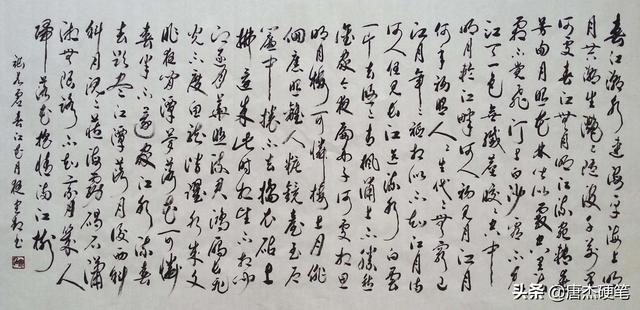 春江潮水连海平海上明
月共潮生滟滟随波千万里
何处春江无月明江流宛转绕
芳甸月照花林皆似霰空里流
霜不觉飞汀上白沙看不见
江天一色无纤尘皎皎空中
月轮江畔何人初见月江月
何年初照人人生代代无穷已
江月年年望相似不知江月待
何人但见长江送流水白云
一片去悠悠青枫浦上不胜愁
谁家今夜扁舟子何处相思
明月楼可怜楼上月徘
徊应照离人妆镜台玉户
帘中卷不去捣衣砧上
拂还来此时相望不相闻
愿逐月华流照君鸿雁长飞
光不度鱼龙潜跃水成文
昨夜闲潭梦落花可怜
春半不还家江水流春
去欲尽江潭落月复西斜
斜月沉沉藏海雾碣石潇
湘无限路不知乘月几人
归落花摇情满江树
张若虚春江花月夜 唐杰书
头条 @唐杰硬笔